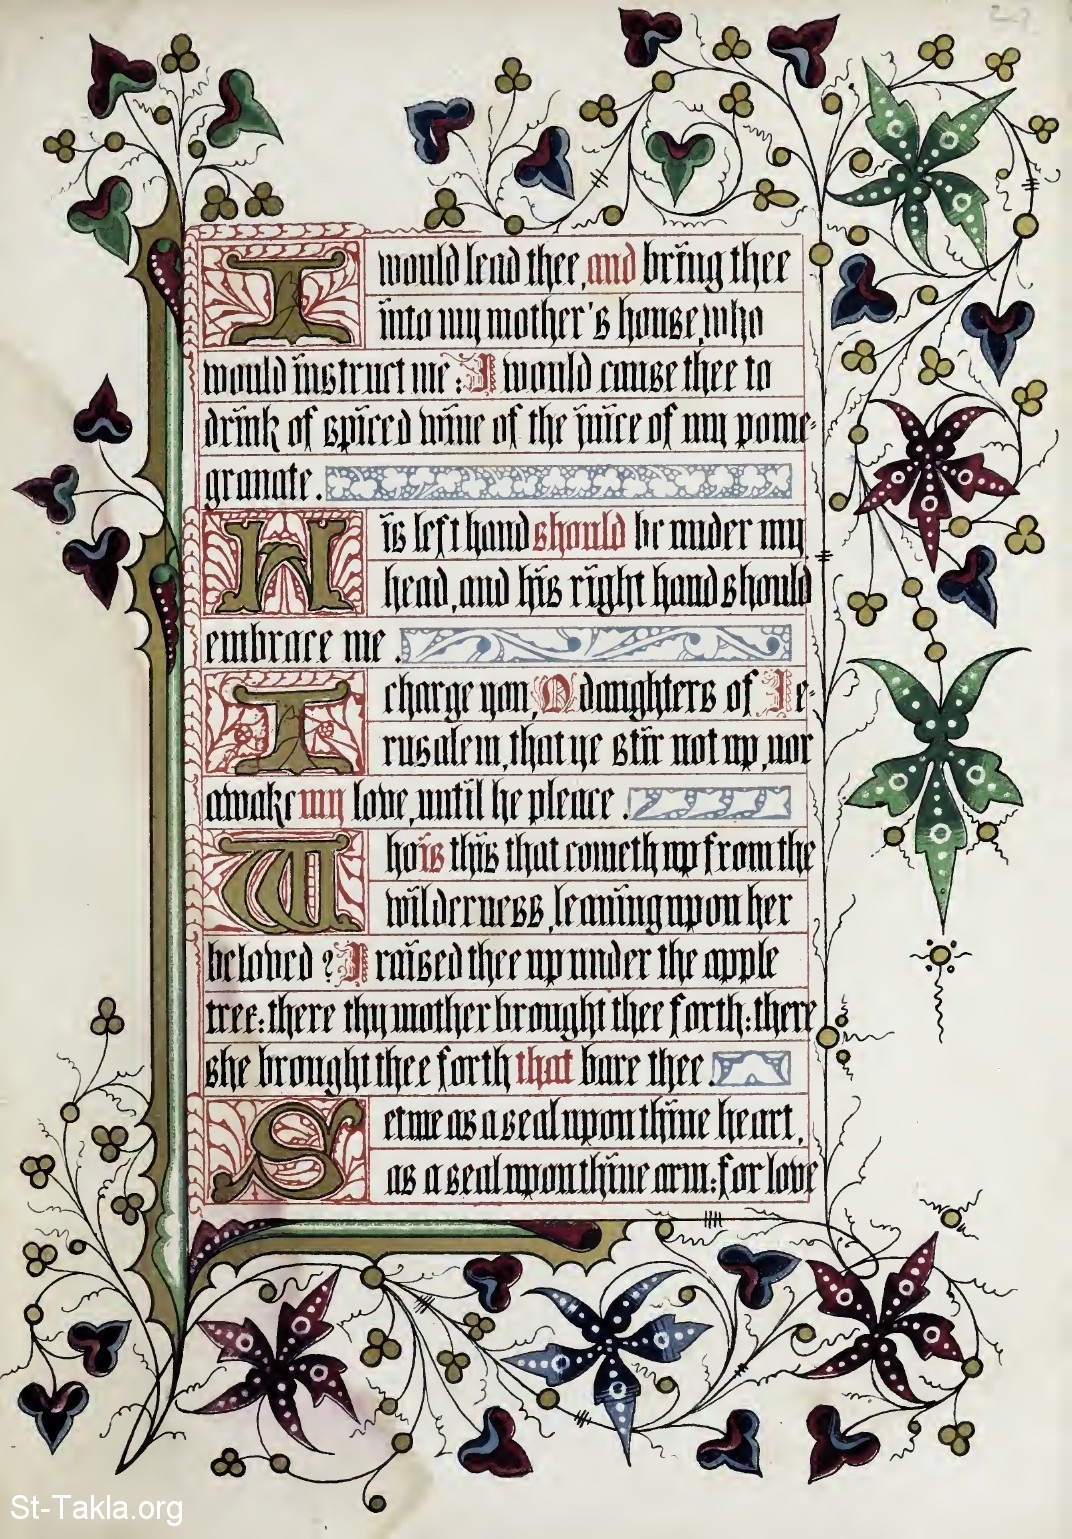 I would lead thee, and bring thee
into my mother's house, who
would instruct me: I would cause thee to
drink of spiced wine of the juice of my pome-
granate.
His left hand should be under my
head, and his right hand should
embrace me.
I charge you, O daughters of Je-
rusalem, that ye stir not up, nor
awake my love, until he please.
Who is this that cometh up from the
wilderness, leaning upon her
beloved? I raised thee up under the apple
tree: there thy mother brought thee forth: there
she brought thee forth that bare thee.
Set me as a seal upon thine heart,
as a seal upon thine arm: for love
St-Takla.org